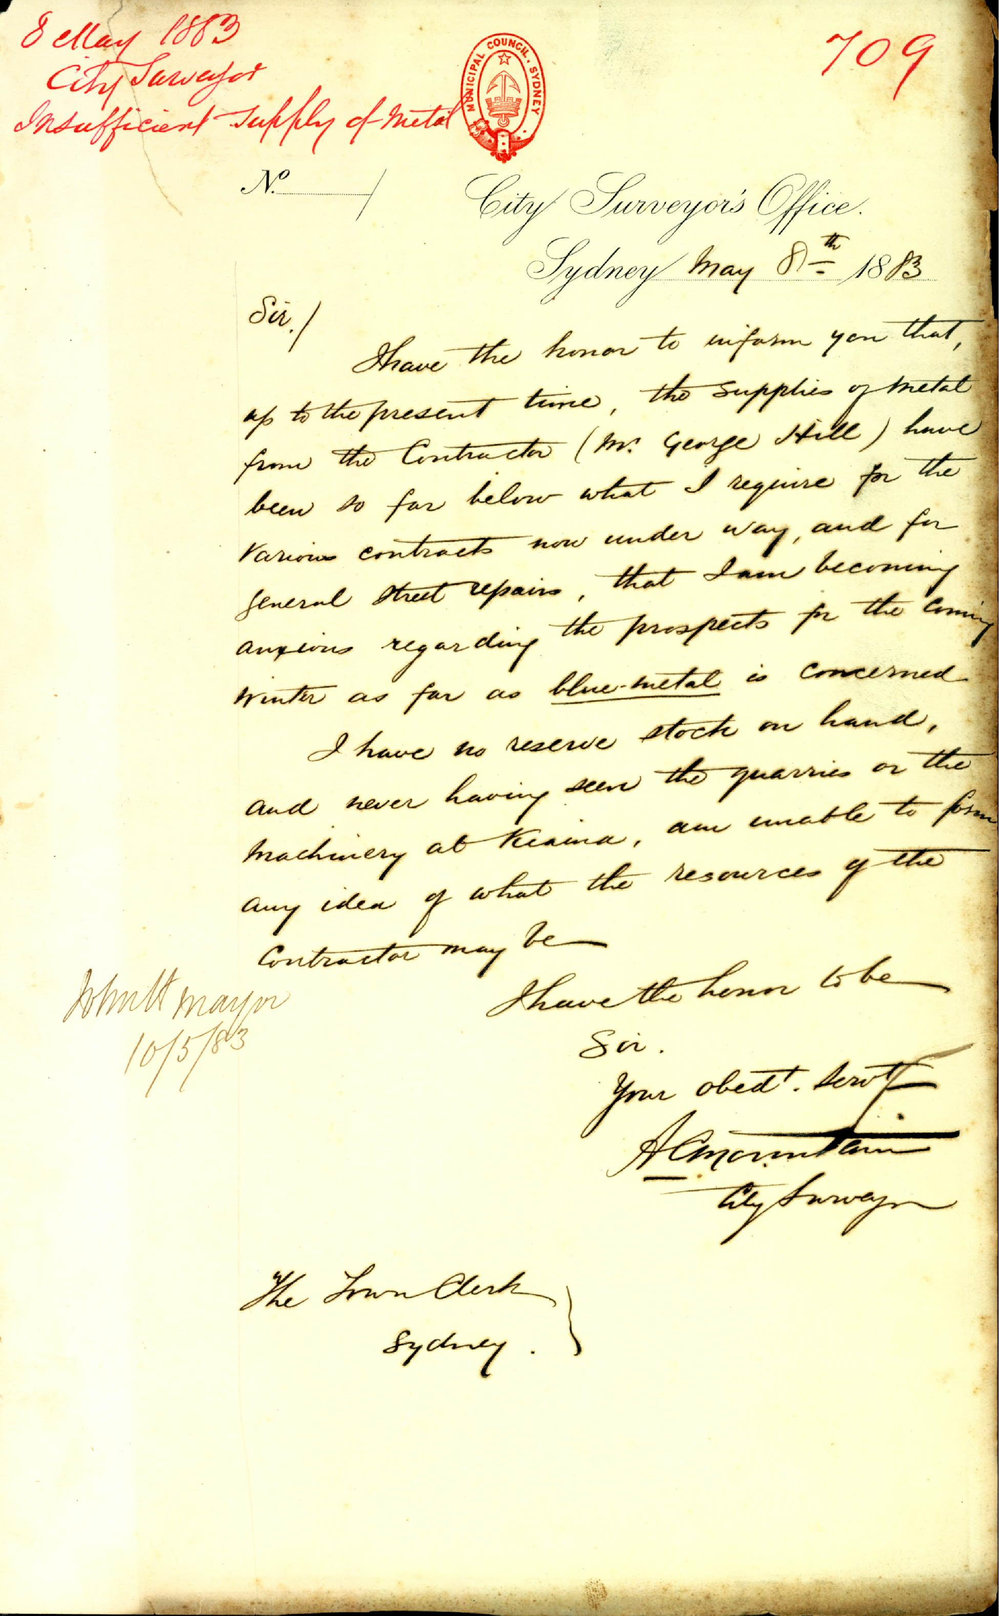 8 May 1883
City Surveyor
Insufficient supply of Metal
709
MUNICIPAL COUNCIL. SYDNEY
No.
City Surveyor's Office.
Sydney May 8th 1883
Sir,/
I have the honor to inform you that,
up to the present time, the supplies of metal
from the Contractor (Mr. George Hill) have
been so far below what I require for the
various contracts now under way, and for
general street repairs, that I am becoming
anxious regarding the prospects for the coming
winter as far as blue-metal is concerned
I have no reserve stock on hand,
and never having seen the quarries or the
machinery at Kiama, am unable to form
any idea of what the resources of the
Contractor may be
I have the honor to be
Sir.
Your obedt. servt
A C Mountain
City Surveyor
Mayor
10/5/83
The Town Clerk
Sydney.